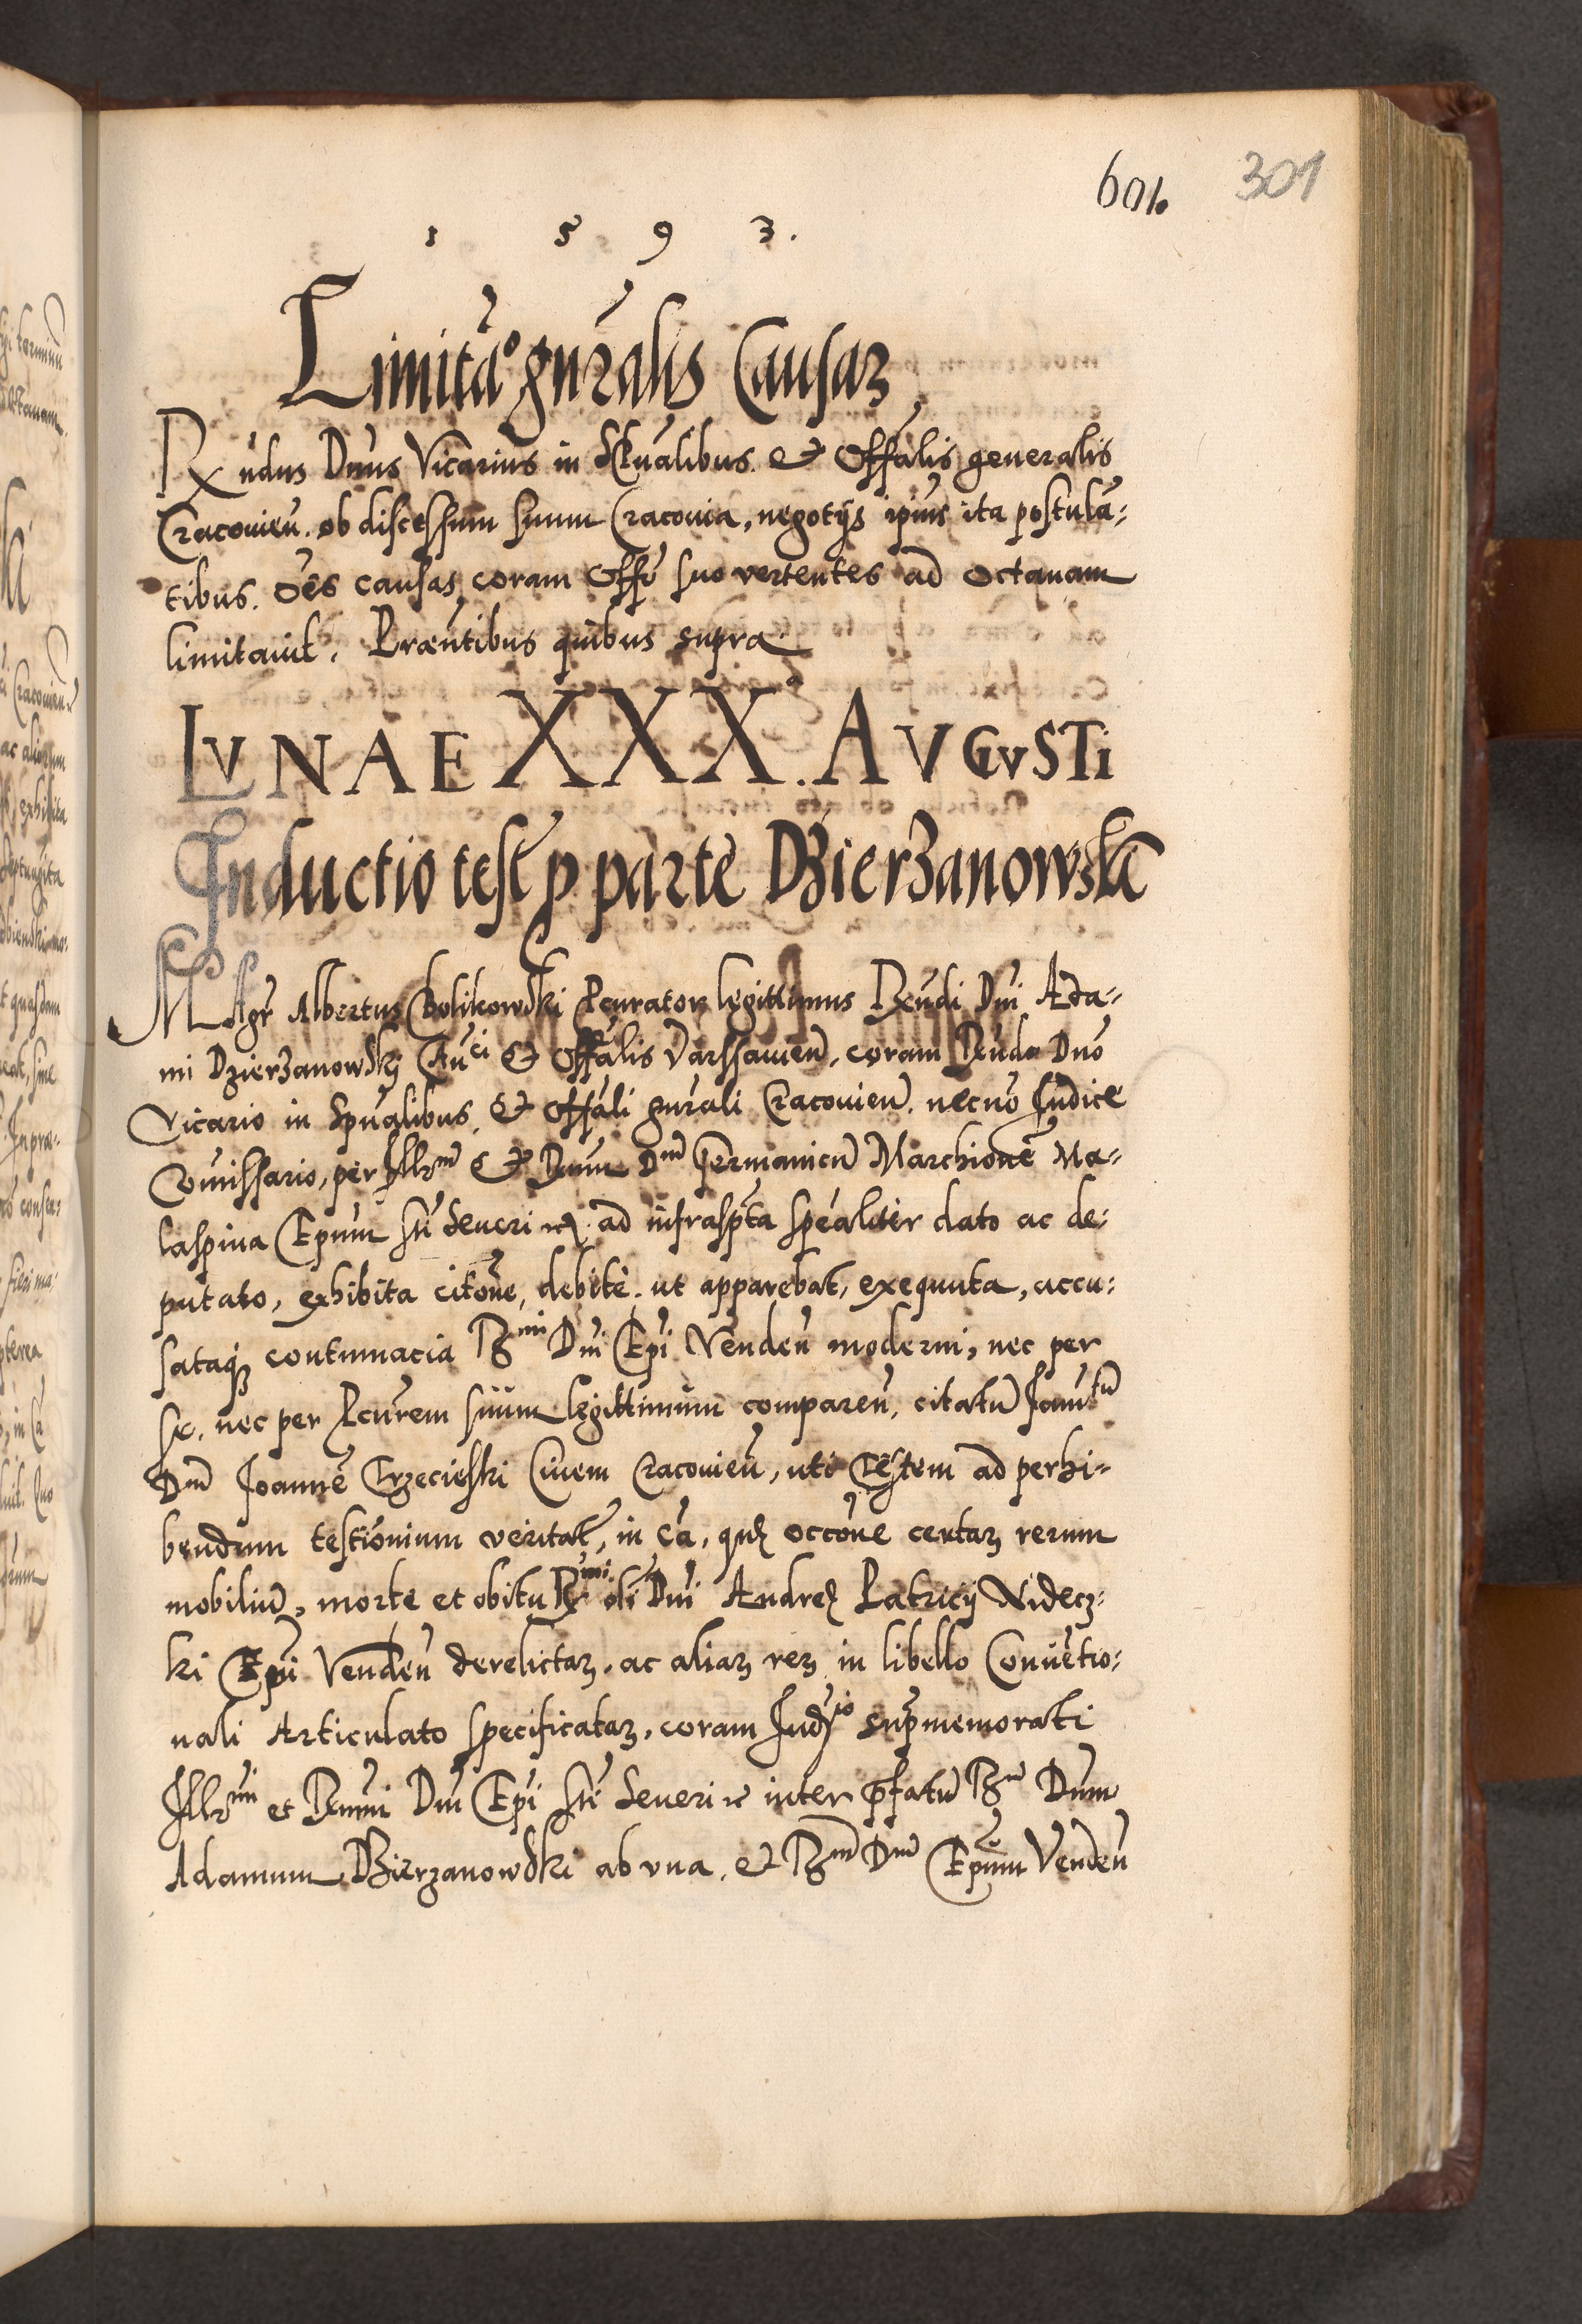 601.
301
1 5 9 3.
Limitā° gnralis Causaꝝ
Rx̄ndus Dnus Vicarius in Spūalibus et Offālis generalis
Cracouieñ. ob discessum suum Cracouia, negotijs ipius ita postulā-
tibus. oēs causas coram Offō suo vertentes ad octauam
limitauit. Praeñtibus quibus supra.
LVNAE XXX. AVGVSTi
Inductio test p parte Dzierzanowsk
MAgr̄ Albertus Bolikowski Pcurator legittimus Rxndi Dni Ada-
mi Dzierzanowskj Caūci et Offālis Varssauieñ, coram Rxndo Dno
Vicario in Spūalibus, et Offāli gnrali Cracouieñ. necnō Judice
Comissario, per Illrm et Rxmum Dnm Germanicū Marchionē Ma-
laspina Epum sti Seueri etc. ad infrasp̄ta speāliter dato ac de-
putato, exhibita citōne, debitè. ut apparebat, exequuta, accu-
sataqꝫ contumacia Rmi Dni Epi Vendeñ moderni, nec per
se, nec per Pcurem suum legittimum compareñ, citatū
Dnm Joannē Trzecieski Ciuem Cracouieñ, uti Testem ad perhi-
bendum testiōnium veritat, in cā, quę occōne certaꝝ rerum
mobiliū, morte et obitu Rmi oli Dni Andreę Patricij Nidecz-
ki Epi Vendeñ derelictaꝝ. ac aliaꝝ reꝝ in libello Conuētio-
nali Articulato specificataꝝ. coram Judio supmemorati
Illrmi et Rxmi Dni Epi sti Seueri etc inter pfatū Rm Dnm
Adamum Dzierzanowski ab vna. et Rm Dnm Epum Vendeñ